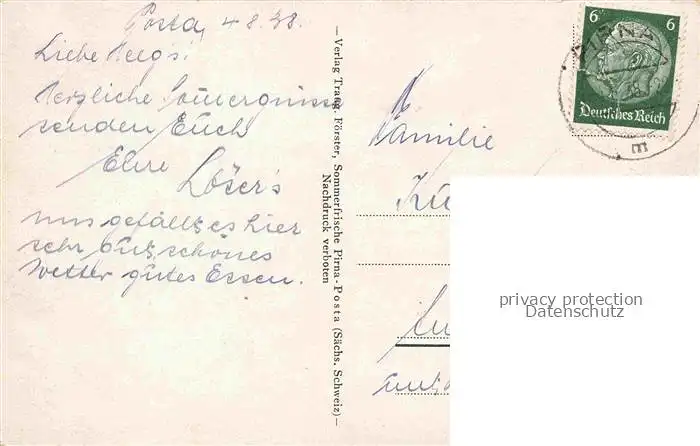 Posta, 4.8.38.
Liebe
Herzliche Sommergrüsse
senden Euch
Löser's
uns gefällt es hier
sehr gut, schönes
Wetter gutes Essen.
— Verlag Traug. Förster, Sommerfrische Pirna-Posta (Sächs. Schweiz) —
Nachdruck verboten
Familie
6 6
Deutsches Reich
PIRNA
privacy protection
Datenschutz